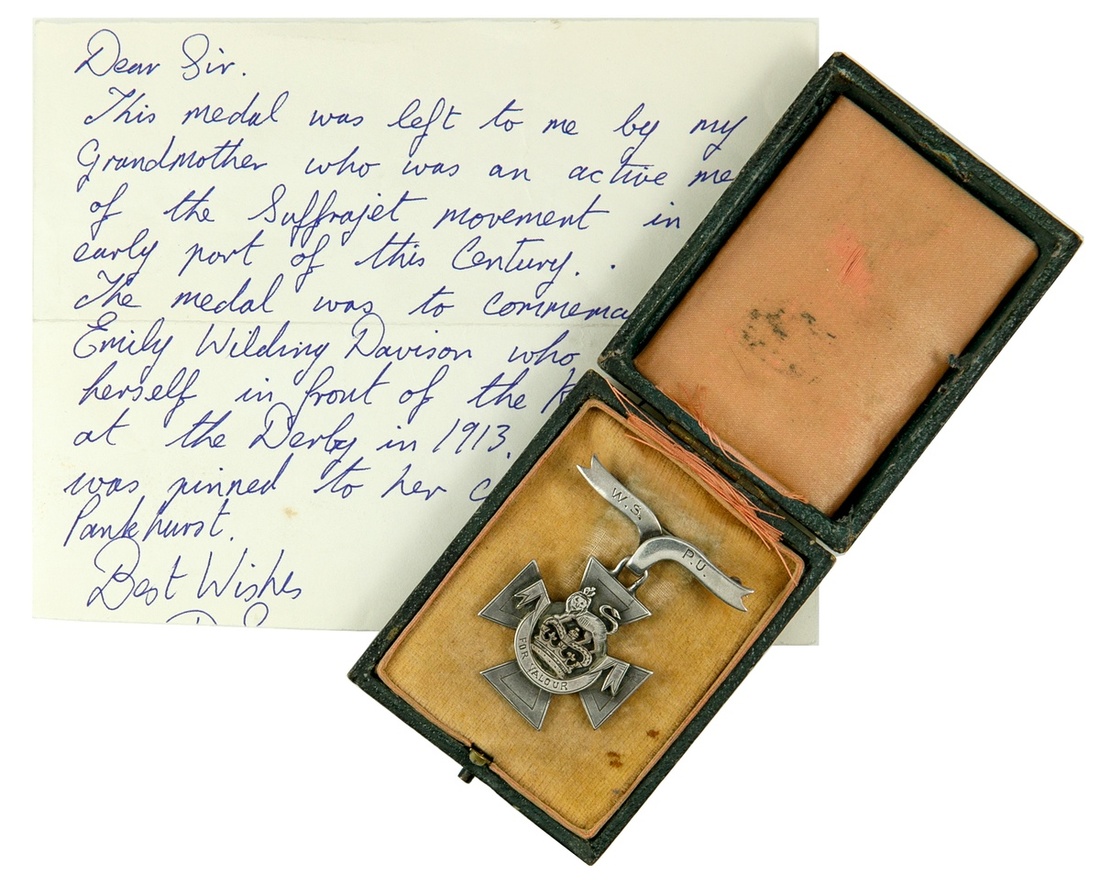 Dear Sir.
This medal was left to me by my
Grandmother who was an active me
of the Suffrajet movement in
early part of this Century.
The medal was to commem
Emily Wilding Davison who
herself in front of the K
at the Derby in 1913.
was pinned to her c
Pankhurst.
Best Wishes
W.S. P.U.
FOR VALOUR